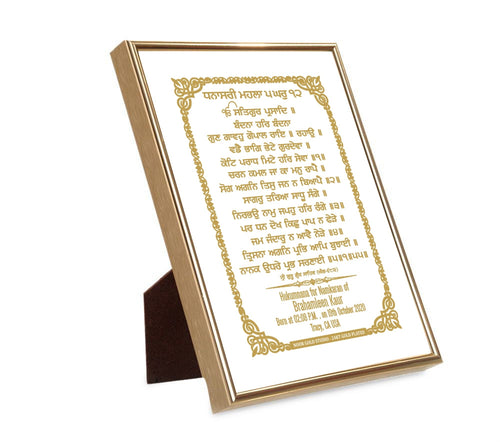 ਧਨਾਸਰੀ ਮਹਲਾ ੫ ਘਰੁ ੧੨
ੴ ਸਤਿਗੁਰ ਪ੍ਰਸਾਦਿ ॥
ਬੰਦਨਾ ਹਰਿ ਬੰਦਨਾ
ਗੁਣ ਗਾਵਹੁ ਗੋਪਾਲ ਰਾਇ ॥ ਰਹਾਉ ॥
ਵਡੈ ਭਾਗਿ ਭੇਟੇ ਗੁਰਦੇਵਾ ॥
ਕੋਟਿ ਪਰਾਧ ਮਿਟੇ ਹਰਿ ਸੇਵਾ ॥੧॥
ਚਰਨ ਕਮਲ ਜਾ ਕਾ ਮਨੁ ਰਾਪੈ ॥
ਸੋਗ ਅਗਨਿ ਤਿਸੁ ਜਨ ਨ ਬਿਆਪੈ ॥੨॥
ਸਾਗਰੁ ਤਰਿਆ ਸਾਧੂ ਸੰਗੇ ॥
ਨਿਰਭਉ ਨਾਮੁ ਜਪਹੁ ਹਰਿ ਰੰਗੇ ॥੩॥
ਪਰ ਧਨ ਦੋਖ ਕਿਛੁ ਪਾਪ ਨ ਫੇੜੇ ॥
ਜਮ ਜੰਦਾਰੁ ਨ ਆਵੈ ਨੇੜੇ ॥੪॥
ਤ੍ਰਿਸਨਾ ਅਗਨਿ ਪ੍ਰਭਿ ਆਪਿ ਬੁਝਾਈ ॥
ਨਾਨਕ ਉਧਰੇ ਪ੍ਰਭ ਸਰਣਾਈ ॥੫॥੧॥੫੫॥
Hukumnama for Namkaran of
Brahamleen Kaur
Born at 02:00 P.M. , on 19th October 2020
Tracy, CA USA
NOOR GOLD STUDIO - 24KT GOLD PLATED